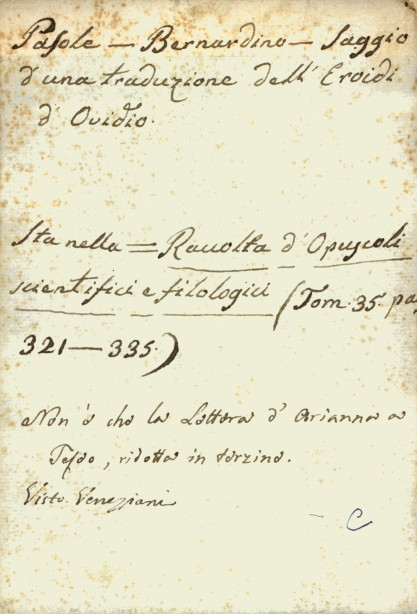 Pasole — Bernardino — Saggio
d'una traduzione dell'Eroidi
d'Ovidio.
Sta nella = Raccolta d'Opuscoli
scientifici e filologici (Tom. 35. pa
321 — 335.)
Non è che la Lettera d'Arianna a
Teseo, ridotta in terzine.
Visto Veneziani
C